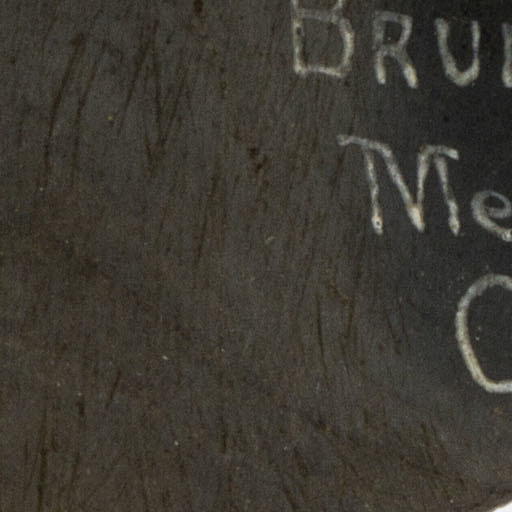 BRU
Me
C